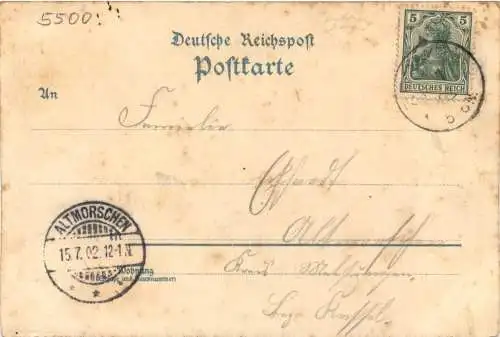 5500.
5 5
DEUTSCHES REICH
Deutsche Reichspost
Postkarte
An
Familie
Altmorschen
ALTMORSCHEN
15.7.02.12-1.N.
Wohnung
Kreis Melsungen
Bez. Kassel.